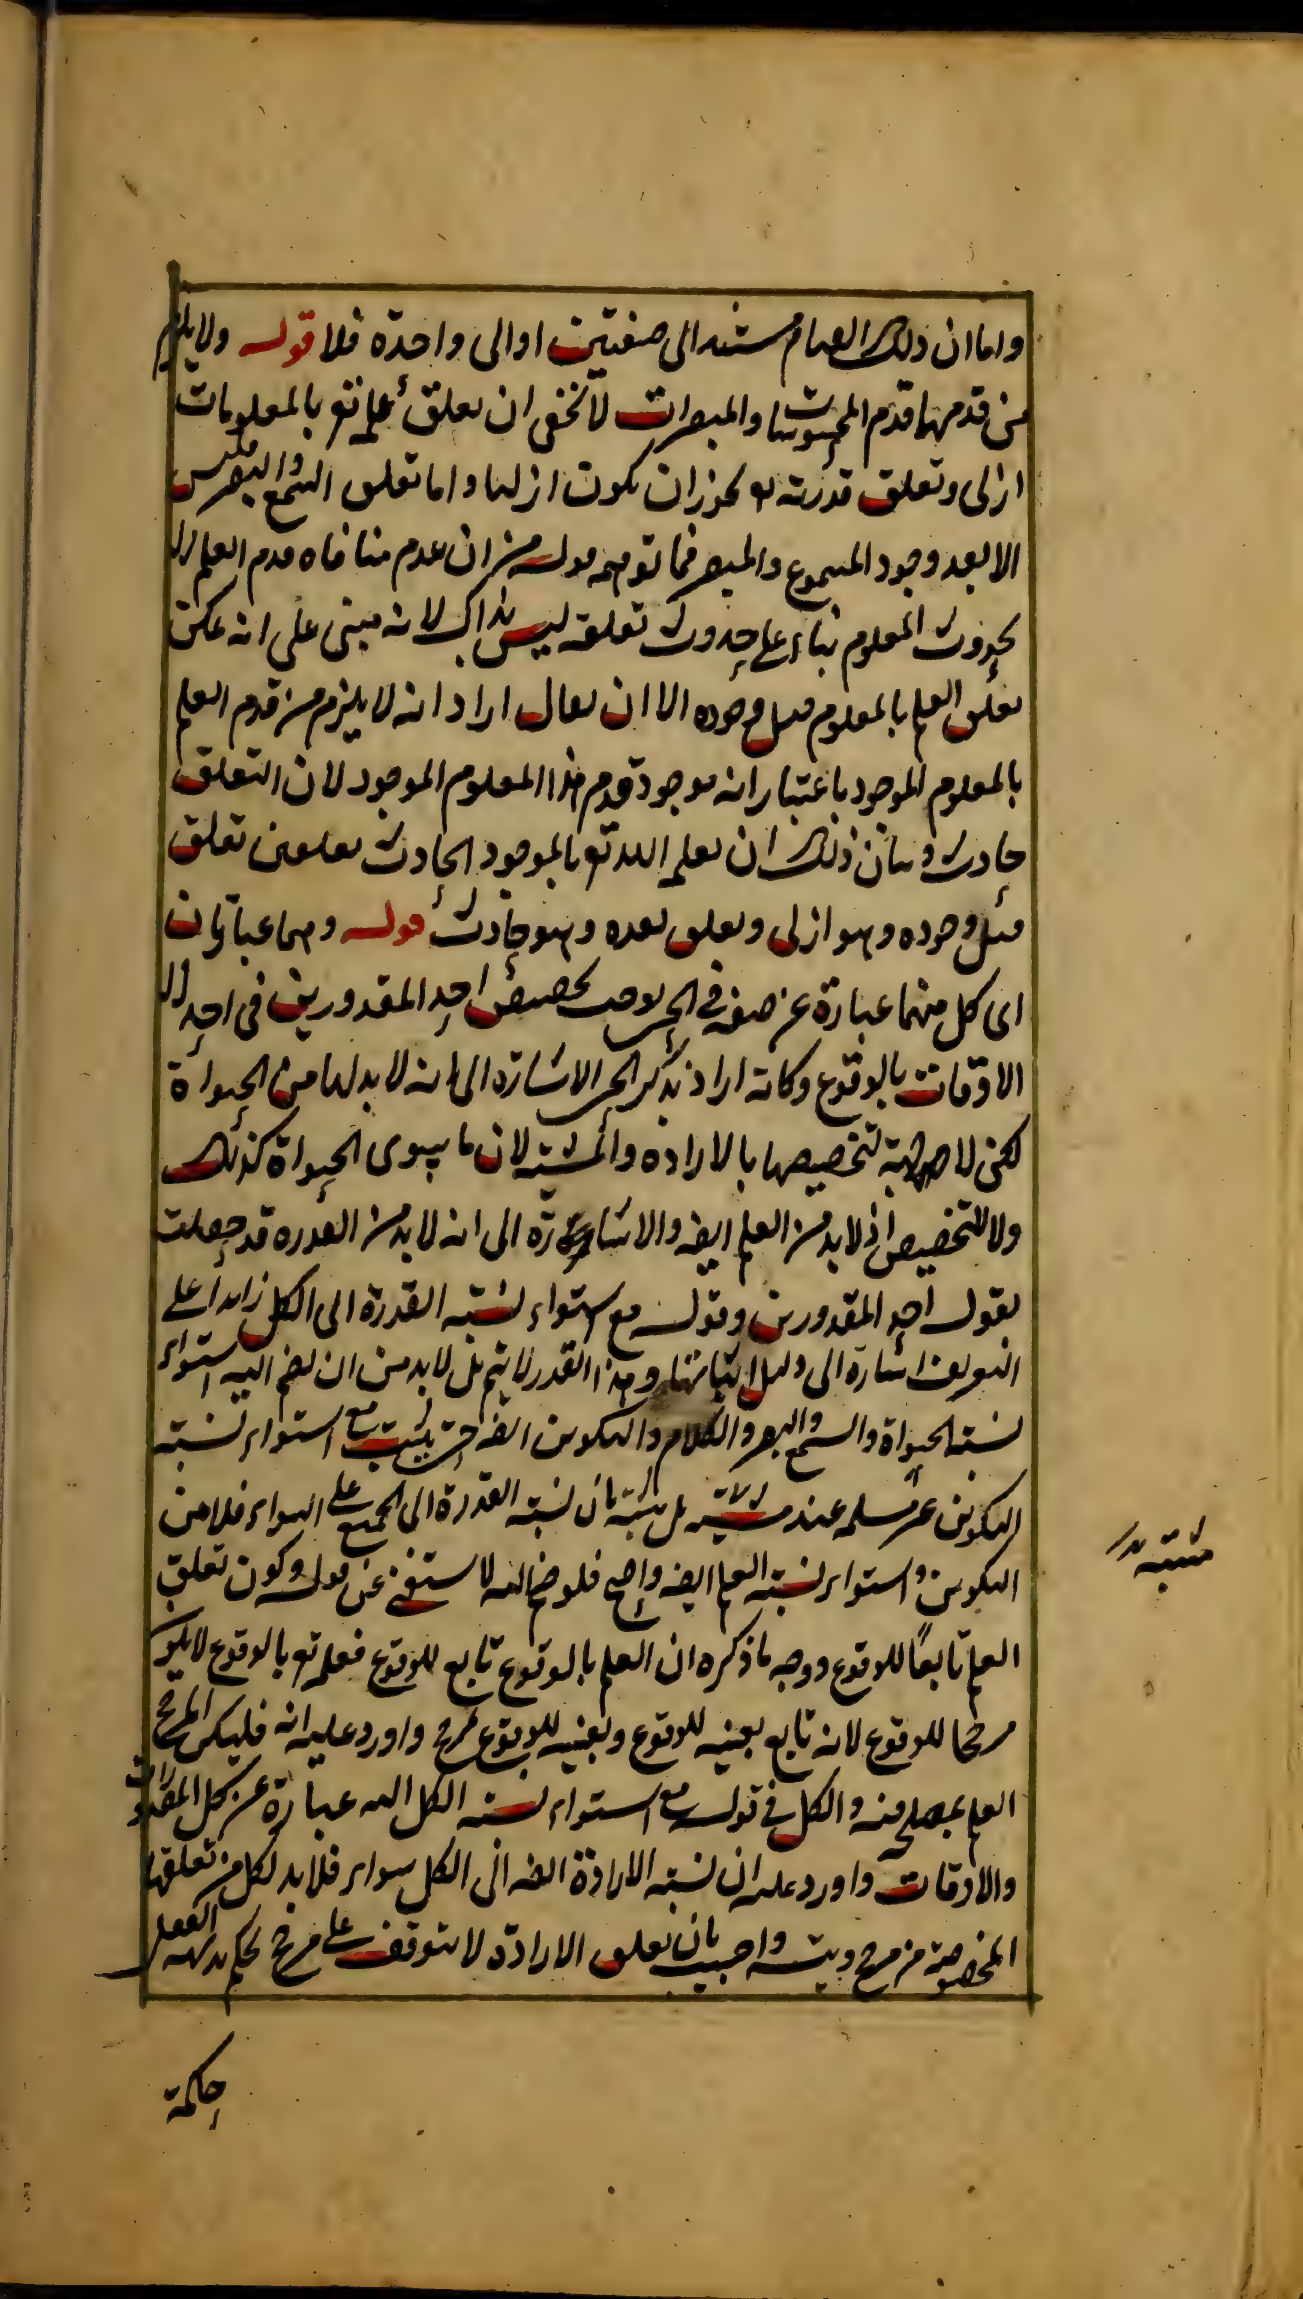 واما ان ذلك العام مستند الى صفتين او الى واحدة فلا قوله ولا يلزم
من قدمهما قدم المحسوسات والمبصرات لا يخفى ان تعلق علمه تع بالمعلومات
ازلى وتعلق قدرته تع يجوز ان يكون ازليا واما تعلق السمع والبصر فليس
الا بعد وجود المسموع والمبصر فما توهمه قوله من ان عدم منافاه قدم العلم
بحدوث المعلوم بناء على حدوث تعلقه ليس بذاك لانه مبنى على انه يمكن
تعلق العلم بالمعلوم قبل وجوده الا ان يقال اراد انه لا يلزم من قدم العلم
بالمعلوم الموجود باعتبار انه موجود قدم هذا المعلوم الموجود لان التعلق
حادث وبيان ذلك ان تعلم الله تع بالموجود الحادث تعلقين تعلق
قبل وجوده وهو ازلى وتعلق بعده وهو حادث قوله وهما عبارتان
اى كل منهما عبارة عن صفه في الحى توجب تخصيص احد المقدورين فى احد
الاوقات بالوقوع وكانه اراد بذكر الحى الاشارة الى انه لا بد لها من الحيواة
لكن لا جهة لتخصيصها بالارادة والمشية لان ما سوى الحيواة كذلك
ولا للتخصيص اذ لا بد من العلم ايضه والاشارة الى انه لا بد من القدره قد جعلت
بقوله احد المقدورين وقوله مع استواء نسبة القدرة الى الكل زايدا على
التعريف اشارة الى دليل اثباتها وهذا القدر لا يتم بل لا بد من ان يضم اليه استواء
نسبة الحيواة والسمع والبصر والكلام والتكوين ايضه حتى يثبت مع استواء نسبة
التكوين غير مسلمه عند مثبته بل يثبته بان نسبة القدرة الى الجميع على السواء فلا من
التكوين و استواء نسبة العلم ايضه واضح فلو ضم اليه لاستغنى عن قوله وكون تعلق
العلم تابعاً للوقوع ووجه ما ذكره ان العلم بالوقوع تابع للوقوع فعلمه تع بالوقوع لا يكون
مرجحا للوقوع لانه تابع بعينه للوقوع وبعينه للوقوع مرجح واورد عليه انه فليكن المرجح
العلم بمصلحة فيه والكل في قوله مع استواء نسبة الكل اليه عبارة عن كل المقدورات
والاوقات واورد عليه ان نسبة الارادة ايضه الى الكل سواء فلا بد لكل من تعلقها
المخصوصة من مرجح ويتسـ واجيب بان تعلق الارادة لا يتوقف على مرجح بحكم بديهه العقل
مثبته
حكمة